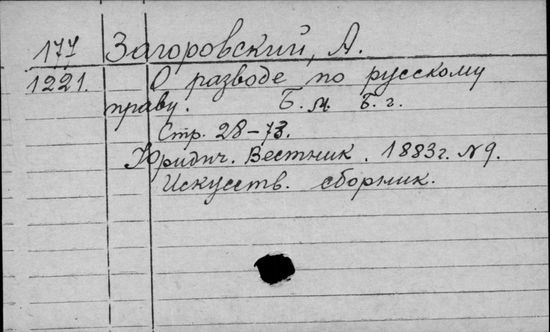 177 Загоровский, А.
1221. О разводе по русскому
праву. Б. м. Б. г.
Стр. 28-73.
Юридич. Вестник. 1883г. N9.
Искусств. сборник.